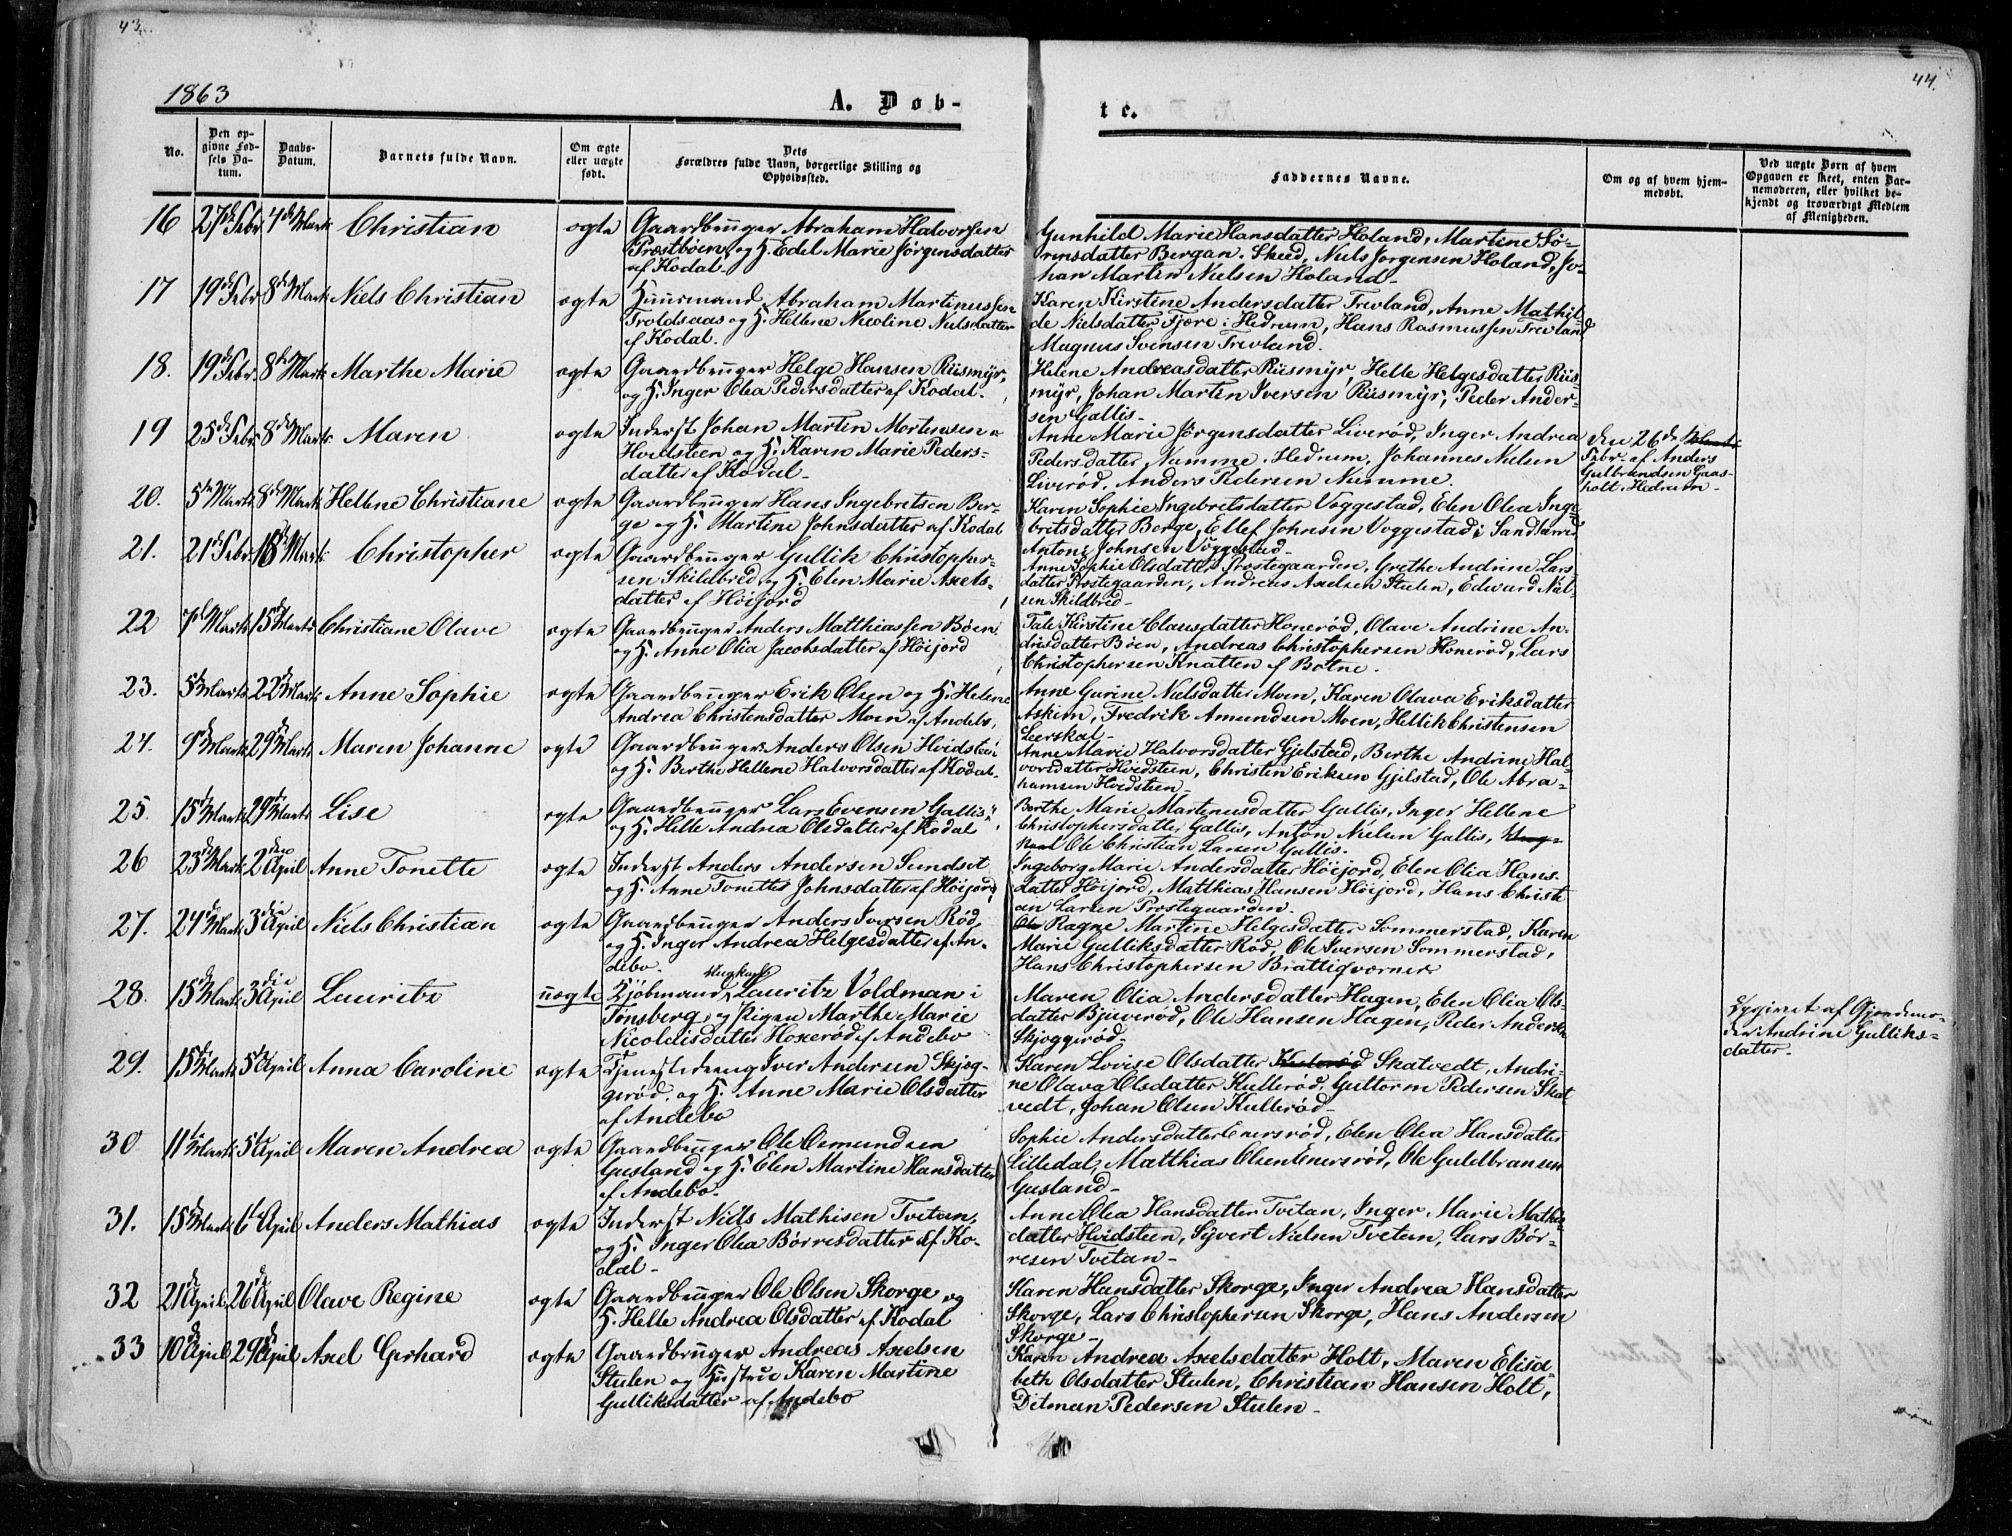 43.
44.
1863
A. Døb-
te.
No.
Den op-
givne Fød-
sels Da-
tum.
Daabs-
Datum.
Barnets fulde Navn.
Om ægte
eller uægte
født.
Dets
Forældres fulde Navn, borgerlige Stilling og
Opholdssted.
Faddernes Navne.
Om og af hvem hjem-
medøbt.
Ved uægte Børn af hvem
Opgaven er skeet, enten Bar-
nemoderen, eller hvilket be-
kjendt og troværdigt Medlem
af Menigheden.
16 27de Febr. 4de Marts Christian ægte Gaardbruger Abraham Halvorsen
Præstbøen og H. Edel Marie Jørgensdatter
af Kodal.
Gunhild Marie Hansdatter Holand, Martine Sø-
rensdatter Bergan. Skeed, Niels Jørgensen Holand, Jo-
han Martin Nielsen Holand.
17 19de Febr. 8de Marts Niels Christian ægte Huusmand Abraham Martinussen
Troldsaas og H. Hellene Nicoline Nielsdatter
af Kodal.
Karen Kirstine Andersdatter Trevland, Anne Mathil-
de Nielsdatter Fjære i Hedrum, Hans Rasmussen Trevland
Magnus Svensen Trevland.
18. 19de Febr. 8de Marts Marthe Marie ægte Gaardbruger Helge Hansen Riismyr,
og H. Inger Olea Pedersdatter af Kodal.
Helene Andreasdatter Riismyr, Helle Helgesdatter Riis-
myr, Johan Martin Iversen Riismyr, Peder Ander-
sen Gallis-
19 25de Febr. 8de Marts Maren ægte Inderst Johan Martin Mortensen
Hvidsteen og H. Karen Marie Peders-
datter af Kodal-
Anne Marie Jørgensdatter Liverød, Inger Andrea
Pedersdatter Numme. Hedrum, Johannes Nielsen
Liverød, Anders Pedersen Numme.
den 26de
Febr. af Anders
Gulbrandsen Gaas-
holt. Hedrum-
20. 5te Marts 8de Marts Hellene Christiane ægte Gaardbruger Hans Ingebretsen Ber-
ge og H. Martine Johnsdatter af Kodal
Karen Sophie Ingebretsdatter Voggestad, Elen Olea Inge-
bretsdatter Berge, Ellef Johnsen Voggestad i Sandeherred
Anton Johnsen Voggestad-
21. 21de Febr. 15de Marts Christopher ægte Gaardbruger Gullik Christopher-
sen Skildbred og H. Elen Marie Axels-
datter af Høijord
Anne Sophie Olsdatter Prestegaarden, Grethe Andrine Lars-
datter Prestegaarden, Andreas Axelsen Stulen, Edward Niel-
sen Skildbred-
22 7de Marts 15de Marts Christiane Olave ægte Gaardbruger Anders Matthiassen Bøen
og H. Anne Olia Jacobsdatter af Høijord
Tale Kirstine Clausdatter Honerød, Olave Andrine An-
drisdatter Bøen, Andreas Christophersen Honerød, Lars
Christophersen Knatten af Botne.
23. 5te Marts 22de Marts Anne Sophie ægte Gaardbruger Erik Olsen og H. Helene
Andrea Christensdatter Moen af Andebo,
Anne Gurine Nielsdatter Moen, Karen Olava Eriksdatter
Askim, Fredrik Amundsen Moen, Hellik Christensen
Leerskal-
24. 9de Marts 29de Marts Maren Johanne ægte Gaardbruger Anders Olsen Hvidsteen
og H. Berthe Hellene Halvorsdatter af Kodal.
Anne Marie Halvorsdatter Gjelstad, Berthe Andrine Hal-
vorsdatter Hvidsteen, Christen Eriksen Gjelstad, Ole Abra-
hamsen Hvidsteen-
25. 15de Marts 29de Marts Lise ægte Gaardbruger Lars Evensen Gallis,
og H. Helle Andrea Olsdatter af Kodal
Berthe Marie Martinusdatter Gallis, Inger Hellene
Christophersdatter Gallis, Anton Nielsen Gallis,
Ole Christian Larsen Gallis.
26 23de Marts 2den April Anne Tonette ægte Inderst Anders Andersen Sundset
og H. Anne Tonette Johnsdatter af Høijord
Ingeborg Marie Andersdatter Høijord, Elen Olia Hans-
datter Høijord, Matthias Hansen Høijord, Hans Christi-
an Larsen Prostegaarden.
27. 24de Marts 3die April Niels Christian ægte Gaardbruger Anders Iversen Rød
og H. Inger Andrea Helgesdatter af An-
debo.
Ragne Martine Helgesdatter Sommerstad, Karen
Marie Gulliksdatter Rød, Ole Iversen Sommerstad,
Hans Christophersen Brattiqværner
28. 15de Marts 3die April Lauritz uægte Kjøbmand, Ungkarl Lauritz Voldman i
Tønsberg og Pigen Marthe Marie
Nicolaisdatter Honerød af Andebo
Maren Olia Andersdatter Hagen, Elen Olia Ols-
datter Bjuerød, Ole Hansen Hagen, Peder Andersen
Skjoggerød-
Opgivet af Gjordemo-
der Andrine Gulliks-
datter.
29. 15de Marts 5te April Anna Caroline ægte Tjenestedreng Iver Andersen Skjog-
gerød, og H. Anne Marie Olsdatter
af Andebo
Karen Lovise Olsdatter Skatvedt, Andri-
ne Olava Olsdatter Kullerød, Guttorm Pedersen Skat-
vedt, Johan Olsen Kullerød-
30 11te Marts 5te April Maren Andrea ægte Gaardbruger Ole Osmundsen
Gusland og H. Elen Martine Hansdatter
af Andebo.
Sophie Andersdatter Enersrød, Elen Olea Hansdatter
Lilledal, Matthias Olsen Enersrød, Ole Guldbransen
Gusland-
31. 15de Marts 6te April Anders Mathias ægte Inderst Niels Mathisen Tvetan,
og H. Inger Olea Børresdatter af Ko-
dal-
Anne Olea Hansdatter Tvetan, Inger Marie Mathis-
datter Hvidsteen, Syvert Nielsen Tvetan, Lars Bør-
resen Tvetan-
32 21de April 26de April Olave Regine ægte Gaardbruger Ole Olsen Skorge og
H. Helle Andrea Olsdatter af Kodal
Karen Hansdatter Skorge, Inger Andrea Hansdatter
Skorge, Lars Christophersen Skorge, Hans Andersen
Skorge-
33 10de April 29de April Axel Gerhard ægte Gaardbruger Andreas Axelsen
Stulen og Hustrue Karen Martine
Gulliksdatter af Andebo
Karen Andrea Axelsdatter Holt, Maren Elisa-
beth Olsdatter Stulen, Christian Hansen Holt,
Ditman Pedersen Stulen-